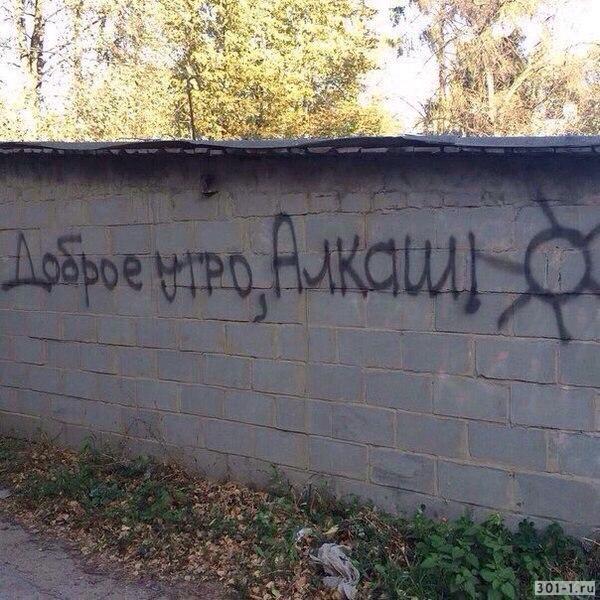 Доброе утро, Алкаш!
301-1.ru